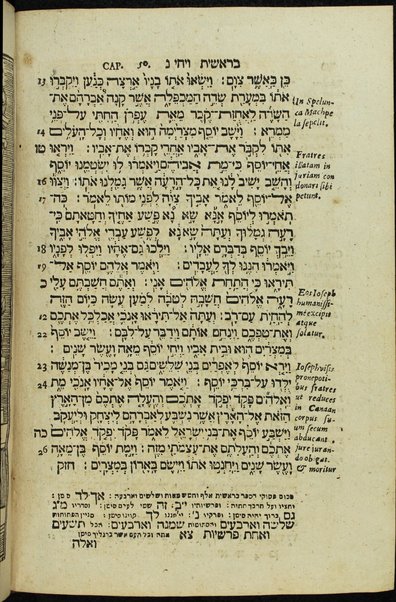 CAP. 50. בראשית ויחי נ
13 כן כאשר צום: וישאו אתו בניו ארצה כנען ויקברו
אתו במערת שדה המכפלה אשר קנה אברהם את־
השדה לאחזת־קבר מאת עפרן החתי על־פני
14 ממרא: וישב יוסף מצרימה הוא ואחיו וכל־העלים
אתו לקבר את־אביו אחרי קברו את־אביו: ויראו טו
אחי־יוסף כי־מת אביהם ויאמרו לו ישטמנו יוסף
16 והשב ישיב לנו את כל־הרעה אשר גמלנו אתו: ויצוו
17 אל־יוסף לאמר אביך צוה לפני מותו לאמר: כה־
תאמרו ליוסף אנא שא נא פשע אחיך וחטאתם כי־
רעה גמלוך ועתה שא נא לפשע עבדי אלהי אביך
18 ויבך יוסף בדברם אליו: וילכו גם־אחיו ויפלו לפניו
19 ויאמרו הננו לך לעבדים: ויאמר אלהם יוסף אל־
תיראו כי התחת אלהים אני: ואתם חשבתם עלי כ
רעה אלהים חשבה לטבה למען עשה כיום הזה
21 להחית עם־רב: ועתה אל־תיראו אנכי אכלכל אתכם
22 ואת־טפכם וינחם אותם וידבר על־לבם: וישב יוסף
במצרים הוא ובית אביו ויחי יוסף מאה ועשר שנים:
23 וירא יוסף לאפרים בני שלשים גם בני מכיר בן־מנשה
24 ילדו על־ברכי יוסף: ויאמר יוסף אל־אחיו אנכי מת
ואלהים פקד יפקד אתכם והעלה אתכם מן־הארץ
הזאת אל־הארץ אשר נשבע לאברהם ליצחק וליעקב
וישבע יוסף את־בני ישראל לאמר פקד יפקד אלהים כה
26 אתכם והעלתם את־עצמתי מזה: וימת יוסף בן־מאה
ועשר שנים ויחנטו אתו ויישם בארון במצרים: חזק
In Spelun
ca Machpe
la sepelit.
Fratres
illatam in
juriam con
donari sibi
petunt.
Eos Ioseph
humanissi-
mè excipit
atque
solatur.
Iosephus
pronepoti-
bus fratres
ut reduces
in Canaan
corpus su-
um secum
abducant
jure juran-
do obligat.
& moritur
סכום פסוקי דספר בראשית אלף וחמש מאות ושלשים וארבעה: אך לד סימן:
וחציו ועל חרבך תחיה: ופרשיותיו י״ב: זה שמי לעולם סימן: וסדריו מ״ג
גם ברוך יהיה סימן: ופרקיו נ׳: יי חננו לך קוינו סימן: מנין הפתוחות
שלשה וארבעים והסתומות שמנה וארבעים: הכל תשעים
ואחת פרשיות צא אתה וכל העם אשר ברגליך סימן
ואלה